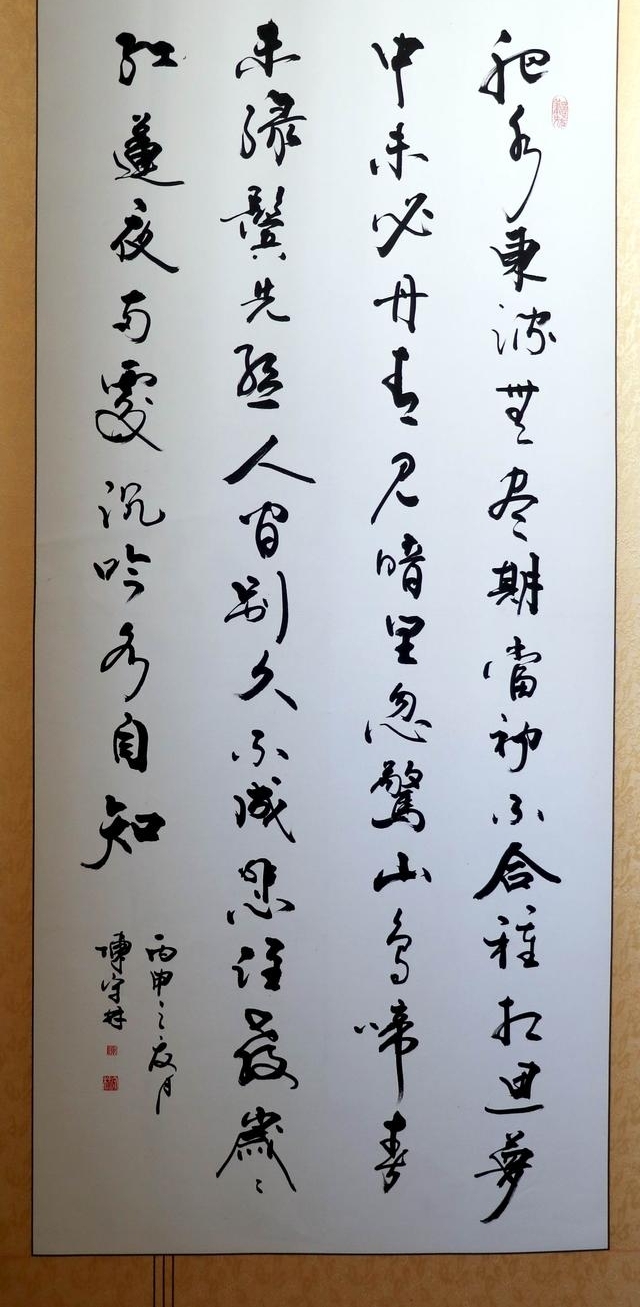 肥水東流無尽期當初不合種相思夢
中未必丹青見暗里忽驚山鳥啼春
未緑鬢先絲人間别久不成悲誰教歲〻
紅蓮夜兩處沉吟各自知
丙申之夏月
陳守林